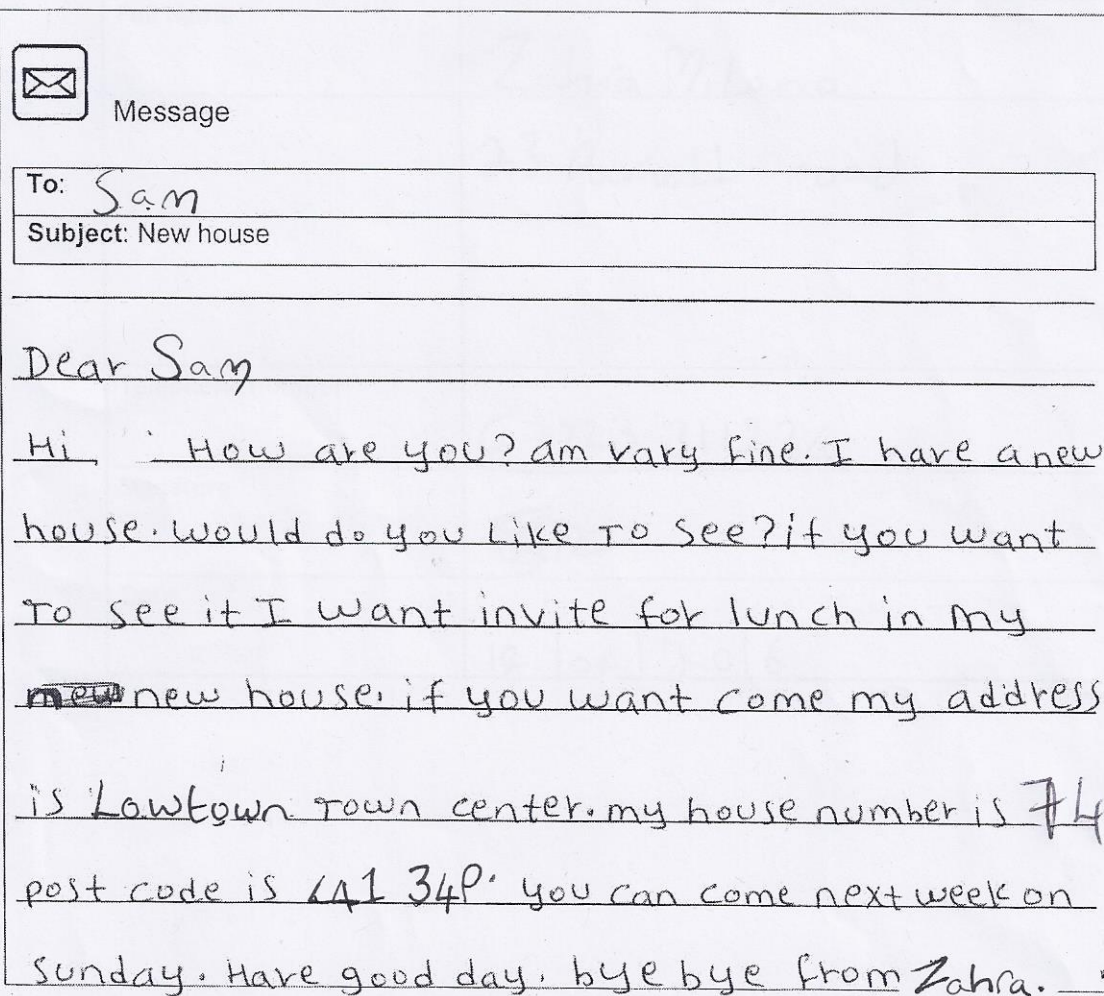 Message
To: Sam
Subject: New house
Dear Sam
Hi, How are you? am vary fine. I have a new
house. would do you Like To see? if you want
To see it I want invite for lunch in my
new house. if you want come my address
is Lowtown Town center. my house number is 74
post code is LA1 34P. you can come next week on
sunday. Have good day. bye bye from Zahra.